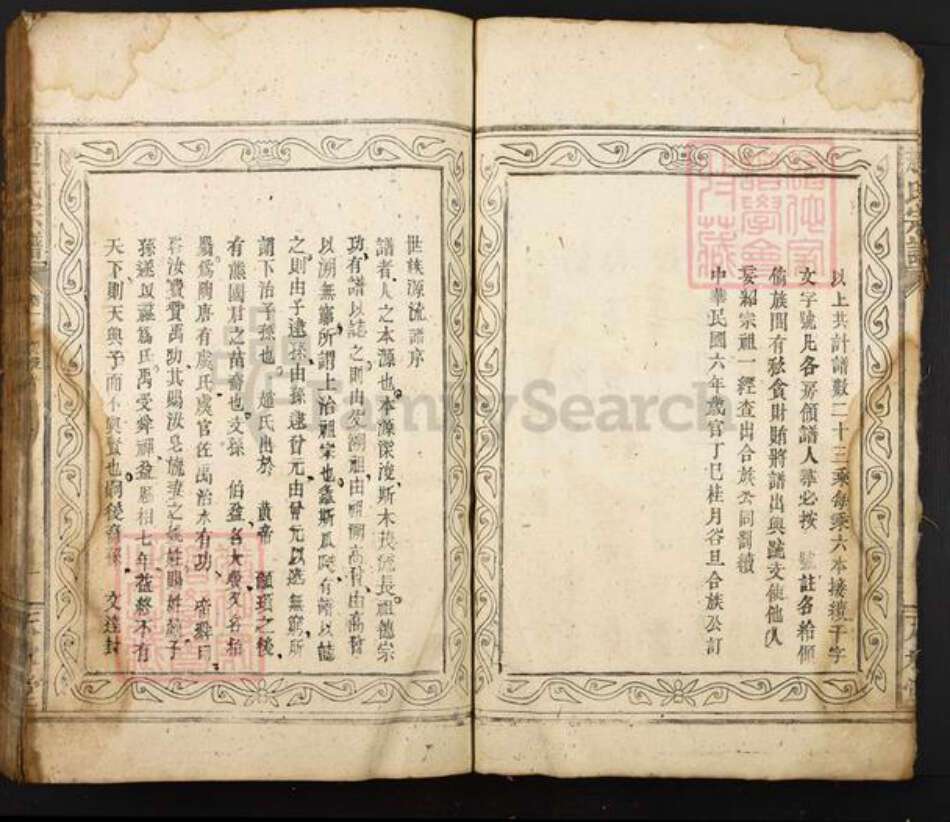 以上共計譜數二十三乘每乘六本接續千字
文字號凡各房領譜人等必按 號註名給領
倘族間有私貪財賄將譜出與疏文使他人
妄紹宗祖一經查出合族公同罰續
中華民國六年歲官丁巳桂月谷旦合族公訂
世族源流譜序
譜者人之本源也本源深浚斯木茂流長祖德宗
功有譜以誌之則由父溯祖由祖溯高曾由高曾
以溯無窮所謂上治祖宗也螽斯瓜瓞有譜以誌
之則由子逮孫由孫逮曾元由曾元以逮無窮所
謂下治子孫也趙氏出於 黃帝 顓頊之後
有熊國君之苗裔也文孫 伯益名大費又名柏
翳爲陶唐有虞氏虞官佐禹治水有功 帝舜曰
咨汝費贊禹功其賜汝皂旒妻之姚姓賜姓嬴子
孫遂以嬴爲氏禹受舜禪益爲相七年益終不有
天下則天與子而不與賢也嗣後裔孫 文達封
FamilySearch